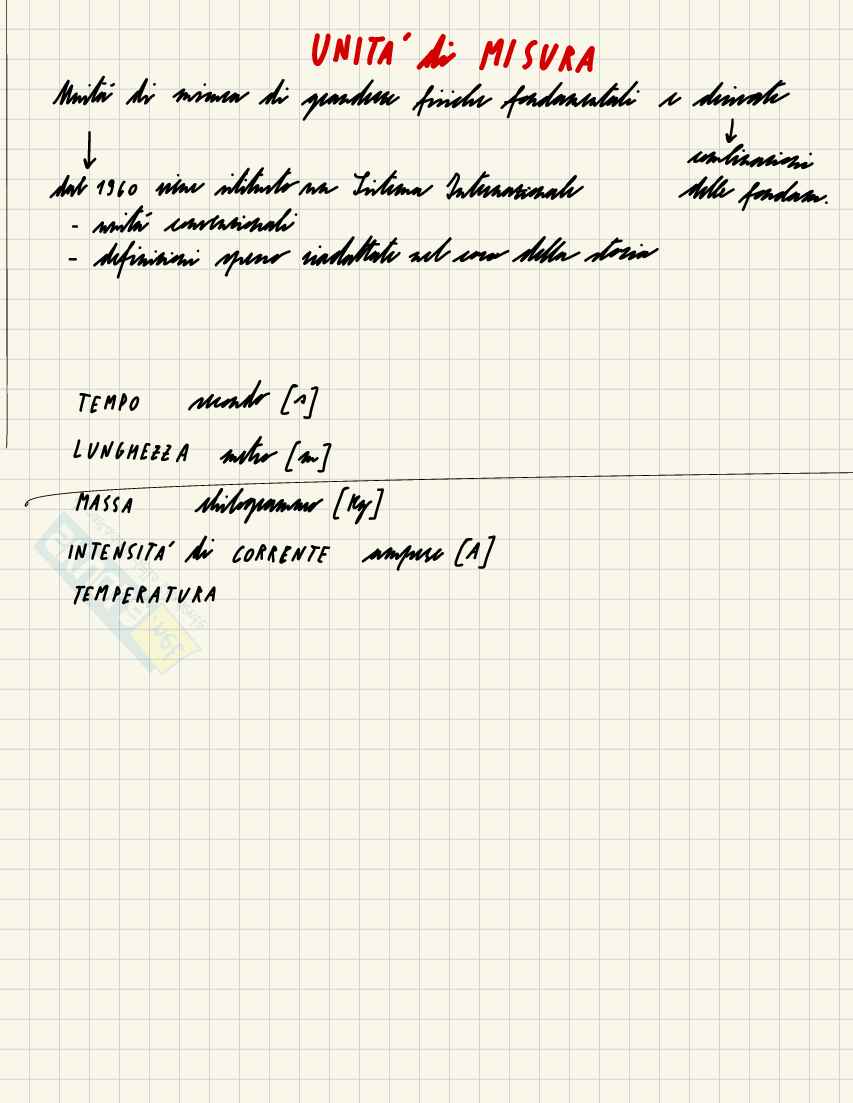 UNITA' di MISURA
Unità di misura di grandezze fisiche fondamentali e derivati
combinazioni
dal 1960 viene istituito un Sistema Internazionale
delle fondam.
- unità convenzionali
- definizioni spesso riadattate nel corso della storia
TEMPO secondo [s]
LUNGHEZZA metro [m]
MASSA chilogrammo [Kg]
INTENSITA' di CORRENTE ampere [A]
TEMPERATURA